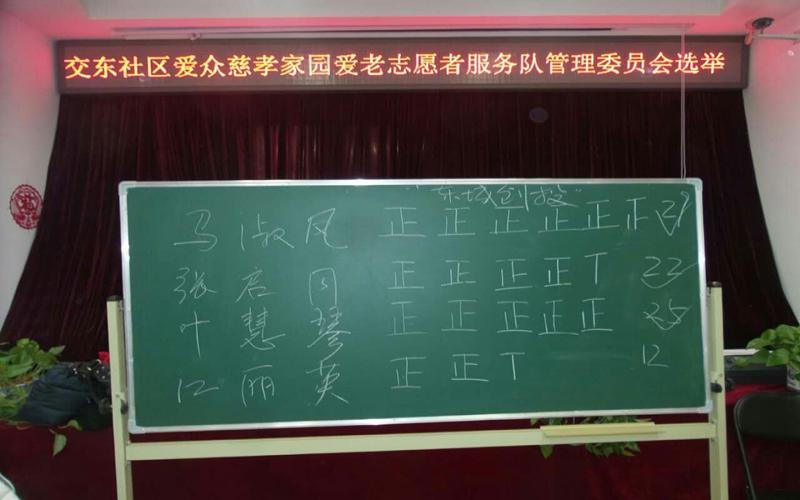 交东社区爱众慈孝家园爱老志愿者服务队管理委员会选举
"东城创投"
马淑凤 正正正正正正 29
张启 正正正正丅 22
叶慧琴 正正正正正 25
江丽英 正正丅 12